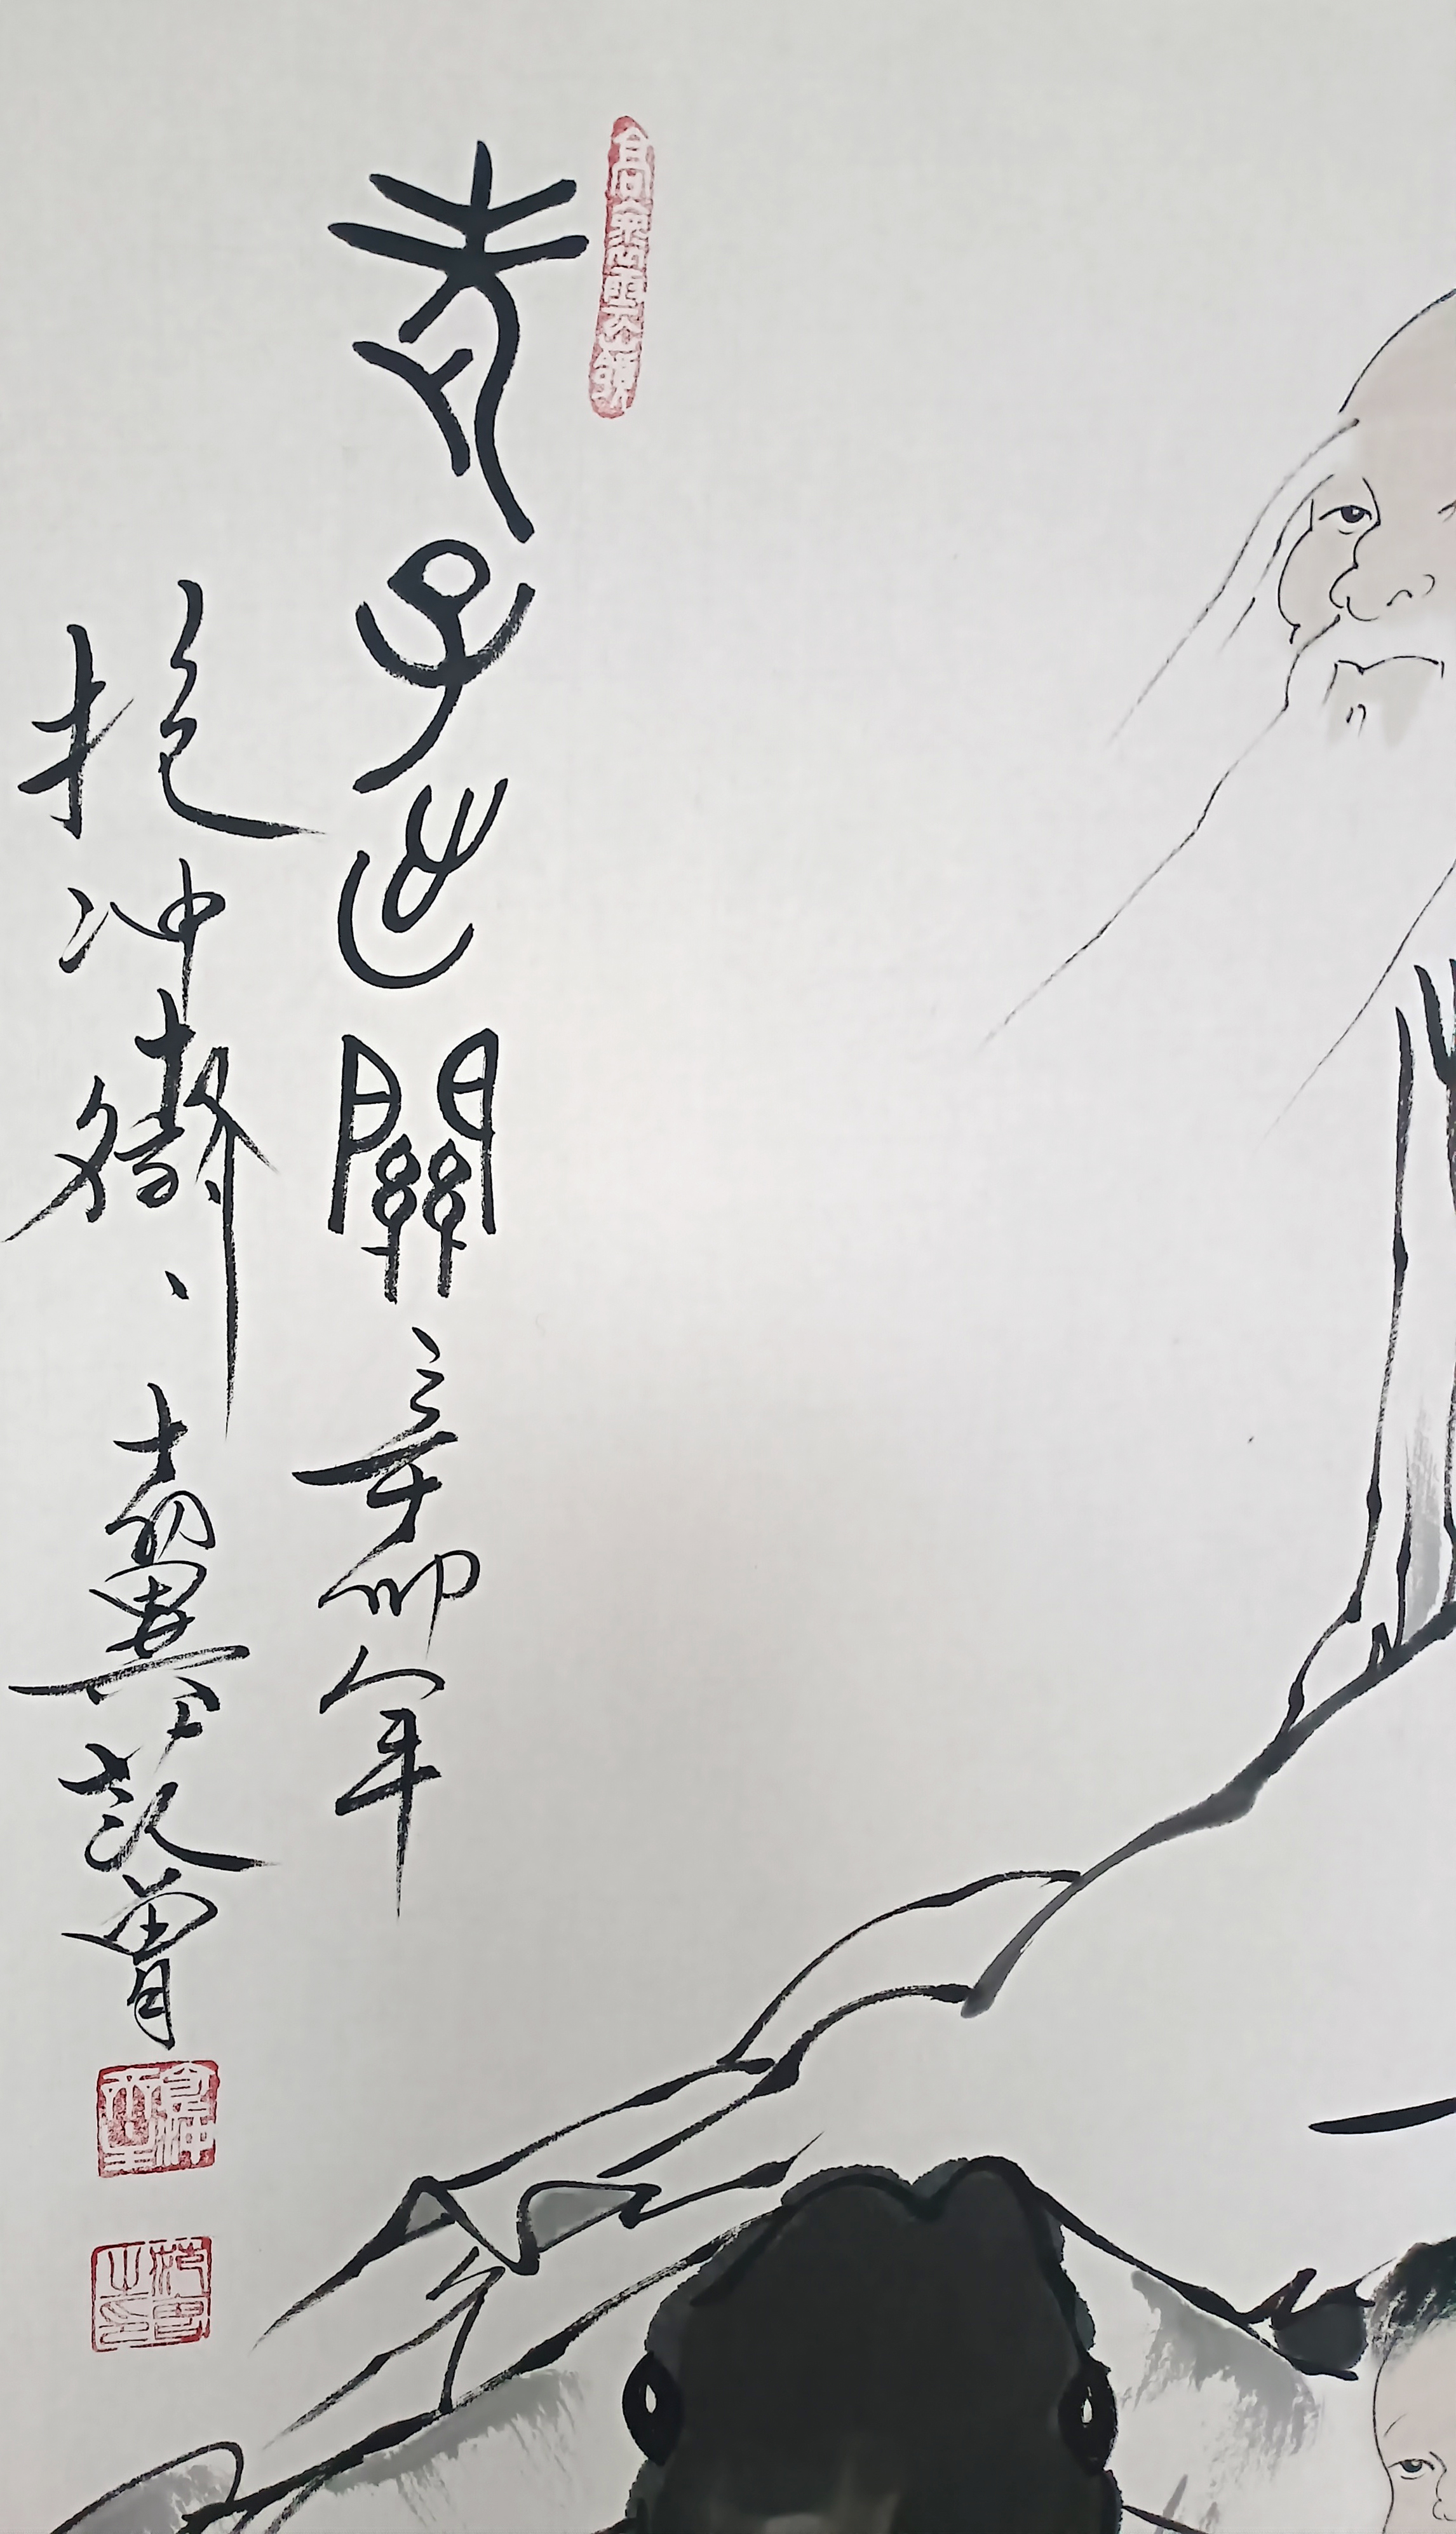 老子出關 辛卯年
抱冲齋、十翼范曾